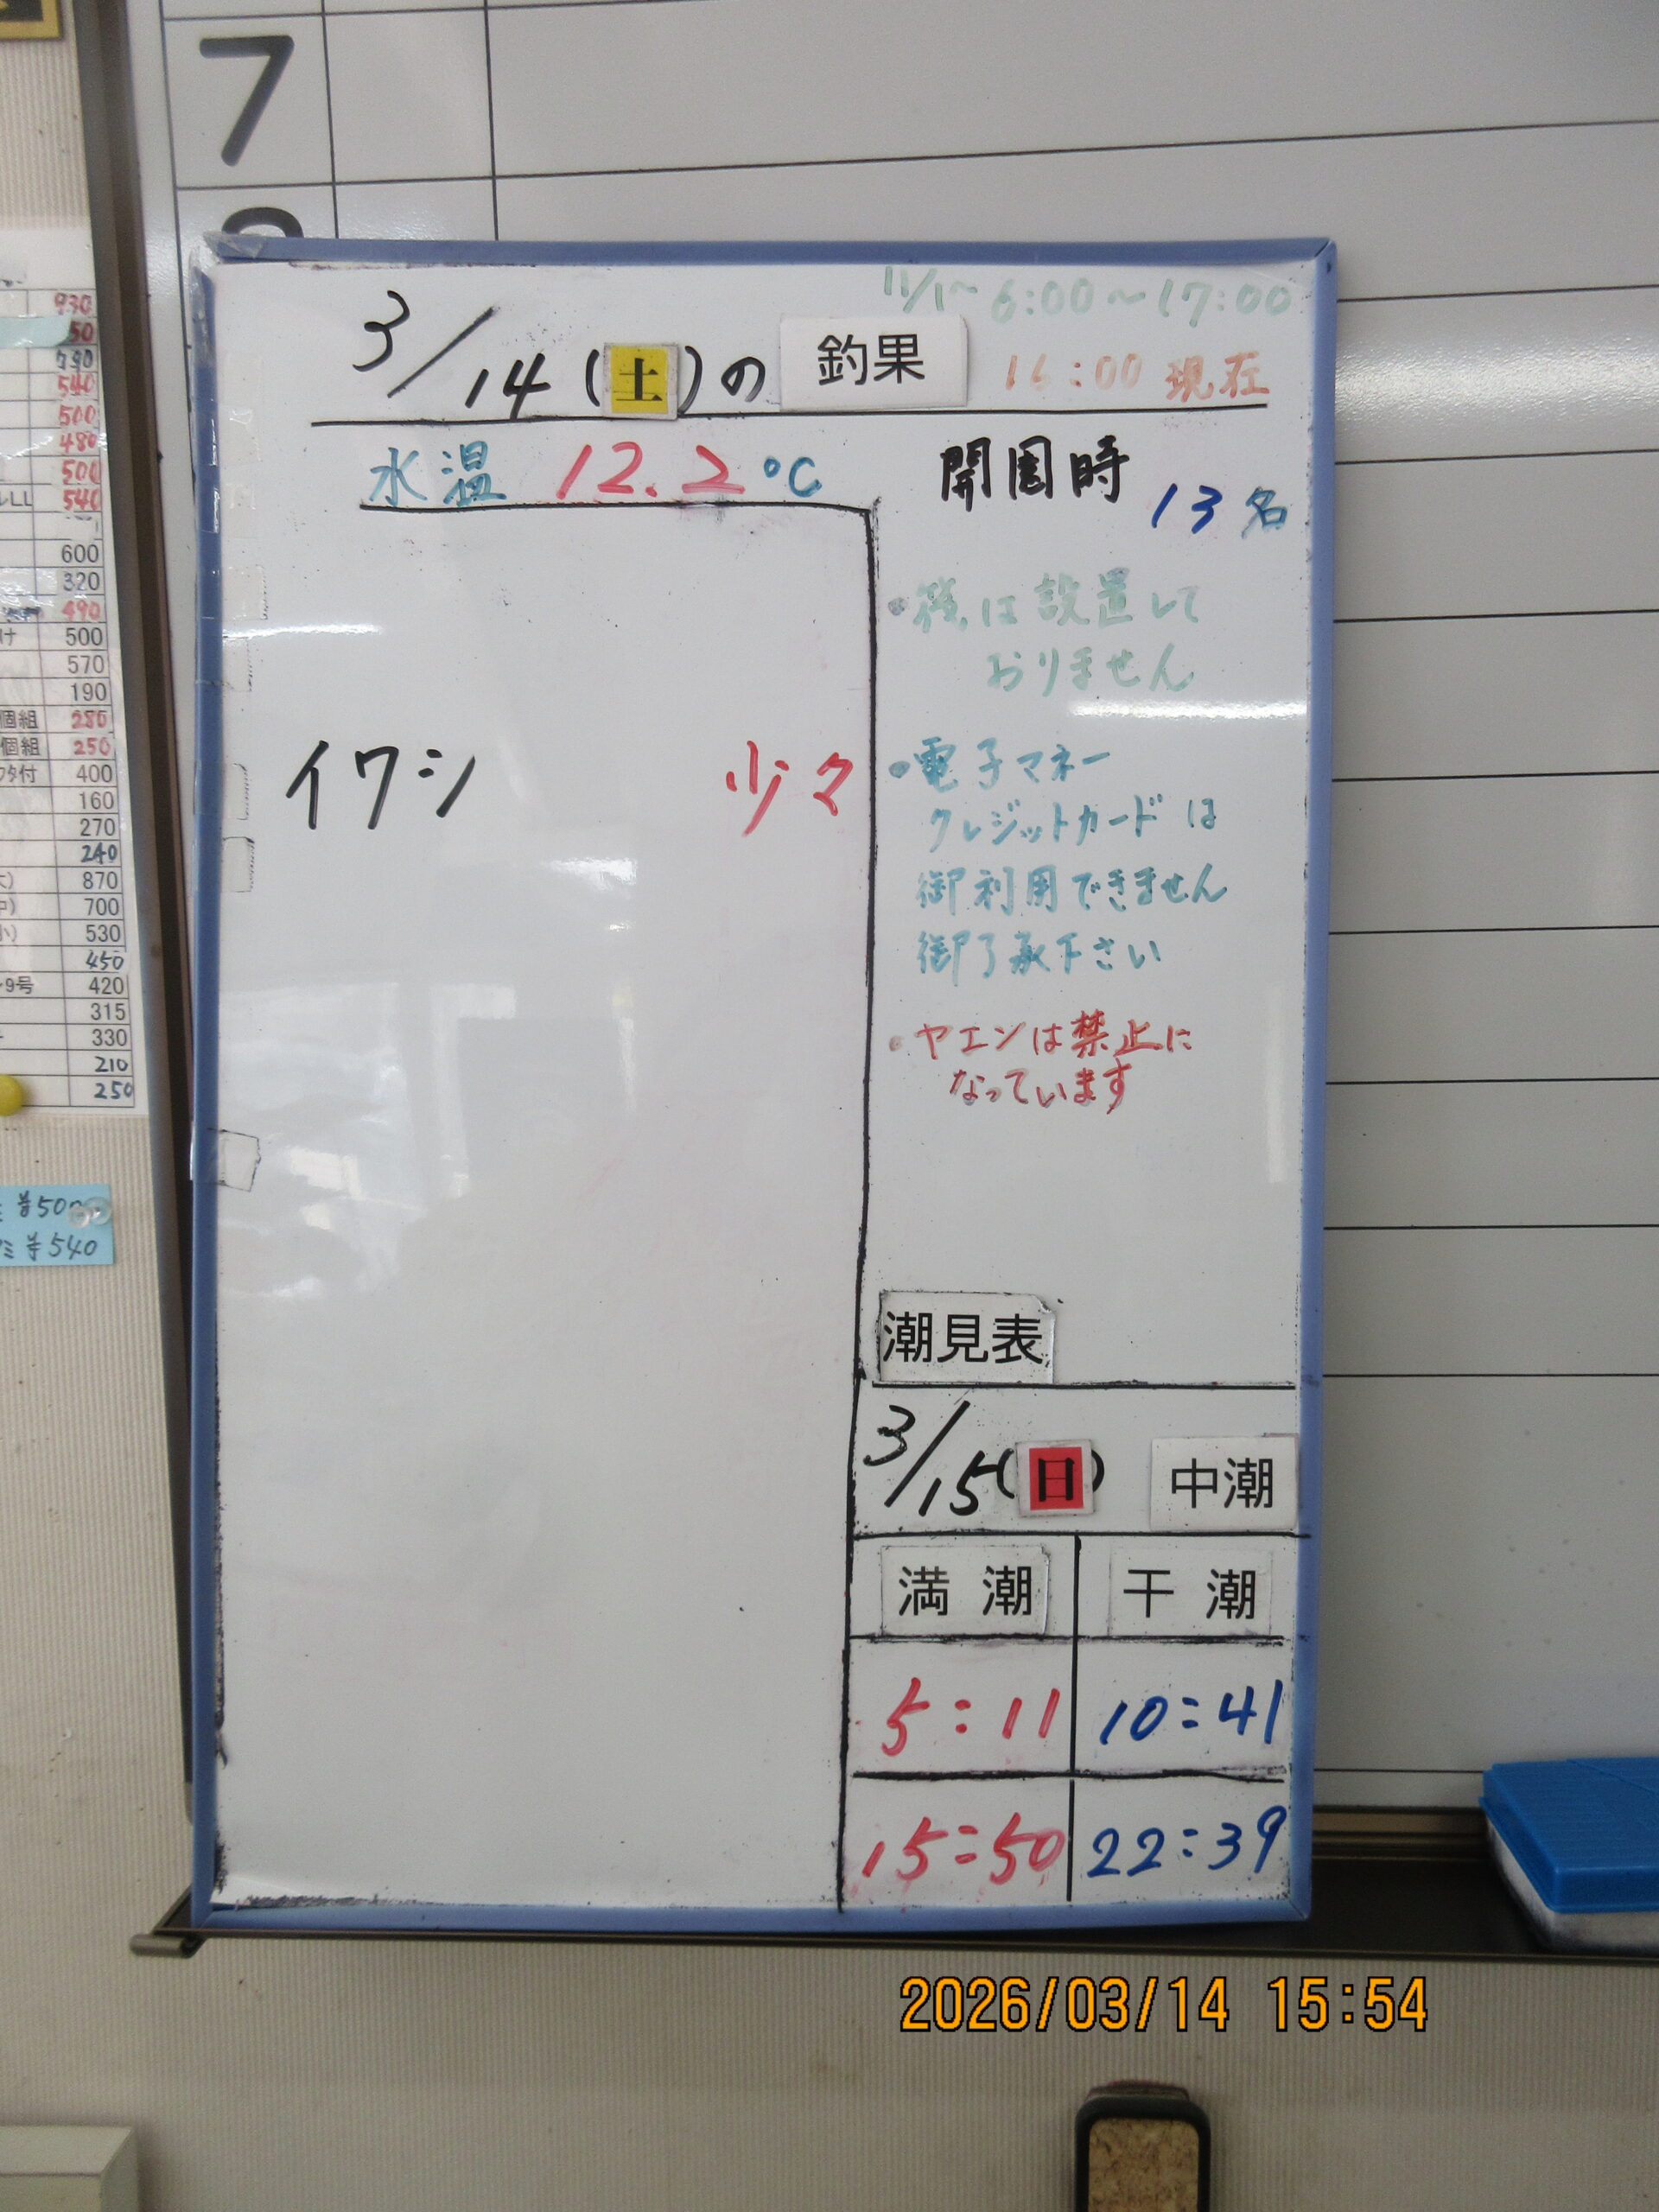 7
11/1~ 6:00～17:00
3/14(土)の 釣果 16:00 現在
水温 12.2℃ 開園時 13名
・後は設置して
おりません
・電子マネー
クレジットカードは
御利用できません
御了承下さい
・ヤエンは禁止に
なっています
イワシ 少々
潮見表
3/15(日) 中潮
満潮 干潮
5:11 10:41
15:50 22:39
930
50
790
540
500
480
500
LL 540
600
320
490
け 500
570
190
個組 280
個組 250
フタ付 400
160
270
240
大) 870
中) 700
小) 530
450
9号 420
315
330
210
250
¥500
ミ ¥540
2026/03/14 15:54